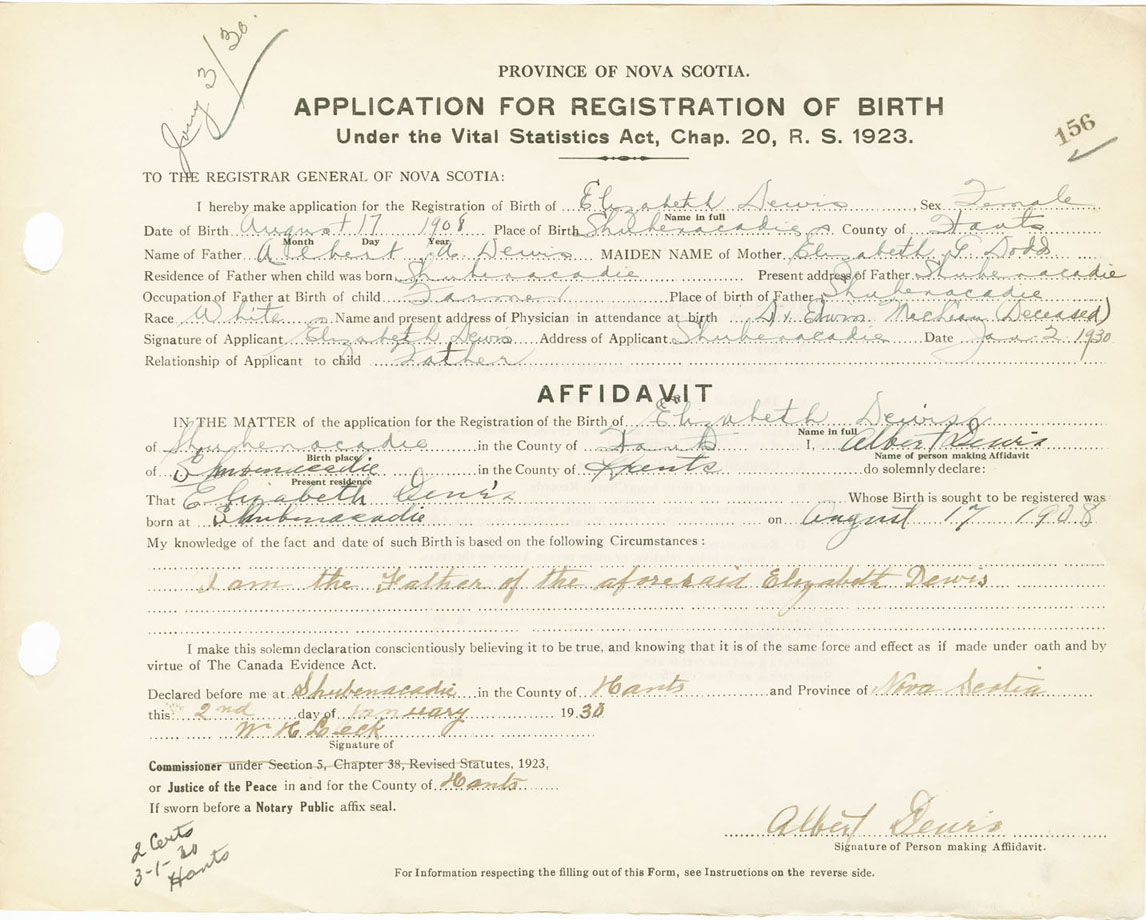 Jany 3/30.
PROVINCE OF NOVA SCOTIA.
APPLICATION FOR REGISTRATION OF BIRTH
Under the Vital Statistics Act, Chap. 20, R. S. 1923.
156
TO THE REGISTRAR GENERAL OF NOVA SCOTIA:
I hereby make application for the Registration of Birth of Elizabeth Dewis Sex Female
Name in full
Date of Birth August 17 1908 Place of Birth Shubenacadie County of Hants
Month Day Year
Name of Father Albert A. Dewis MAIDEN NAME of Mother Elizabeth G. Dodd
Residence of Father when child was born Shubenacadie Present address of Father Shubenacadie
Occupation of Father at Birth of child Farmer Place of birth of Father Shubenacadie
Race White Name and present address of Physician in attendance at birth Dr Edwin (Deceased)
Signature of Applicant Elizabeth Dewis Address of Applicant Shubenacadie Date Jan 2 1930
Relationship of Applicant to child Father
AFFIDAVIT
IN THE MATTER of the application for the Registration of the Birth of Elizabeth Dewis
Name in full
of Shubenacadie in the County of Hants I, Albert Dewis
Birth place Name of person making Affidavit
of Shubenacadie in the County of Hants do solemnly declare:
Present residence
That Elizabeth Dewis Whose Birth is sought to be registered was
born at Shubenacadie on August 17 1908
My knowledge of the fact and date of such Birth is based on the following Circumstances :
I am the Father of the aforesaid Elizabeth Dewis
I make this solemn declaration conscientiously believing it to be true, and knowing that it is of the same force and effect as if made under oath and by
virtue of The Canada Evidence Act.
Declared before me at Shubenacadie in the County of Hants and Province of Nova Scotia
this 2nd day of January 1930
W H
Signature of
Commissioner under Section 5, Chapter 38, Revised Statutes, 1923,
or Justice of the Peace in and for the County of Hants
If sworn before a Notary Public affix seal.
Albert Dewis
Signature of Person making Affidavit.
2 Certs
3-1-30
Hants
For Information respecting the filling out of this Form, see Instructions on the reverse side.